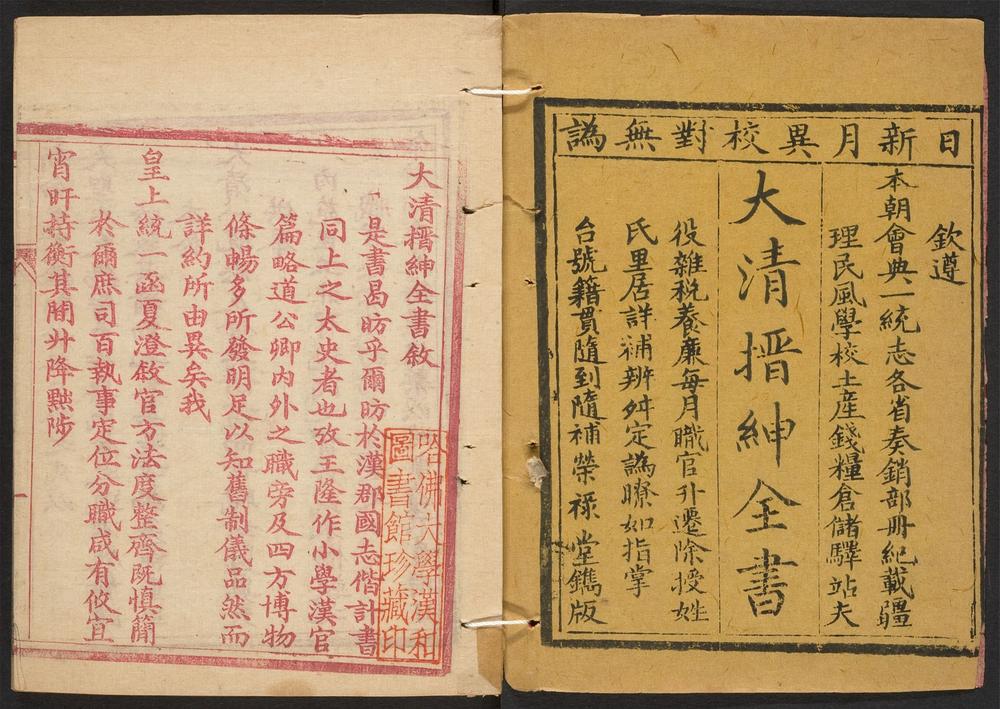 日新月異校對無譌
欽遵
本朝會典一統志各省奏銷部冊紀載疆
理民風學校土産錢糧倉儲驛站夫
大清搢紳全書
役雜税養廉每月職官升遷除授姓
氏里居詳補辨舛定譌瞭如指掌
台號籍貫隨到隨補榮祿堂鐫版
大清搢紳全書敘
是書曷昉乎爾昉於漢郡國志偕計書
同上之太史者也攷王隆作小學漢官
篇略道公卿內外之職旁及四方博物
條暢多所發明足以知舊制儀品然而
詳約所由異矣我
皇上統一函夏澄敘官方法度整齊既慎簡
於爾庶司百執事定位分職咸有攸宜
宵旰持衡其間升降黜陟
哈佛大學漢和
圖書館珍藏印